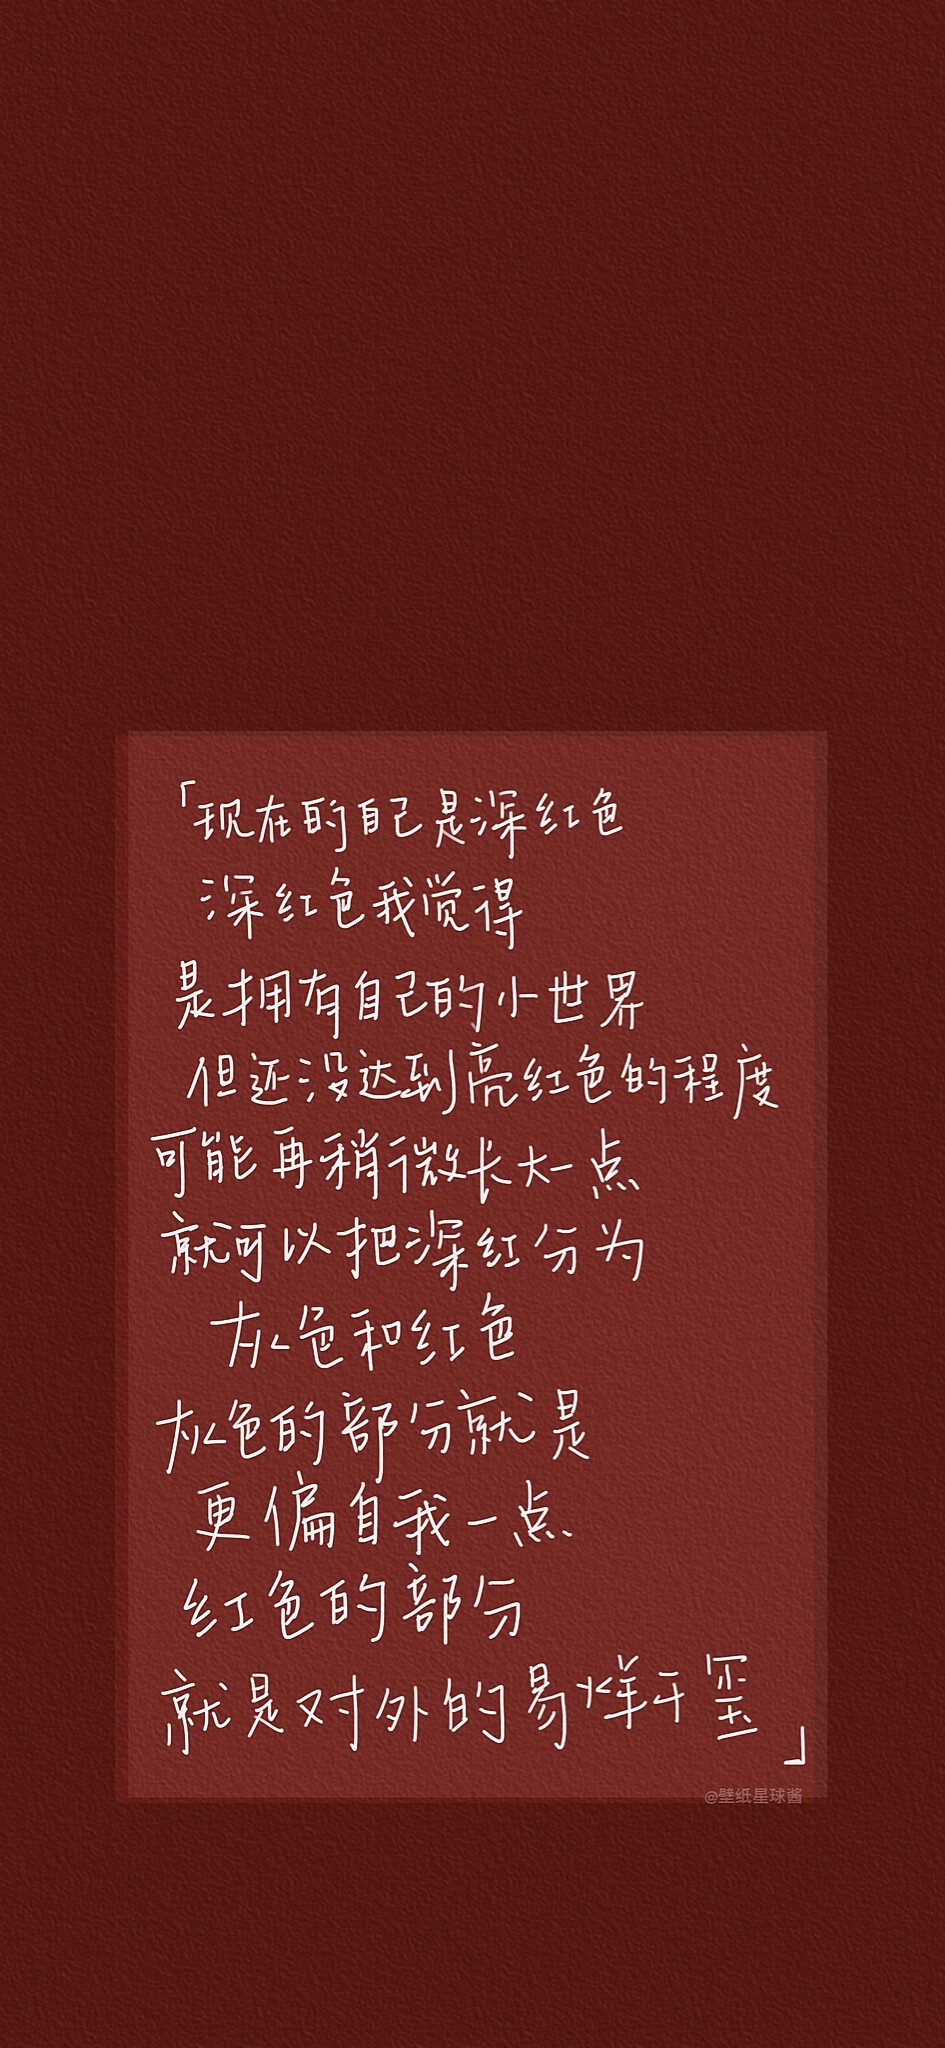 「现在的自己是深红色
深红色我觉得
是拥有自己的小世界
但还没达到亮红色的程度
可能再稍微长大一点
就可以把深红分为
灰色和红色
灰色的部分就是
更偏自我一点
红色的部分
就是对外的易烊千玺」
@壁纸星球酱